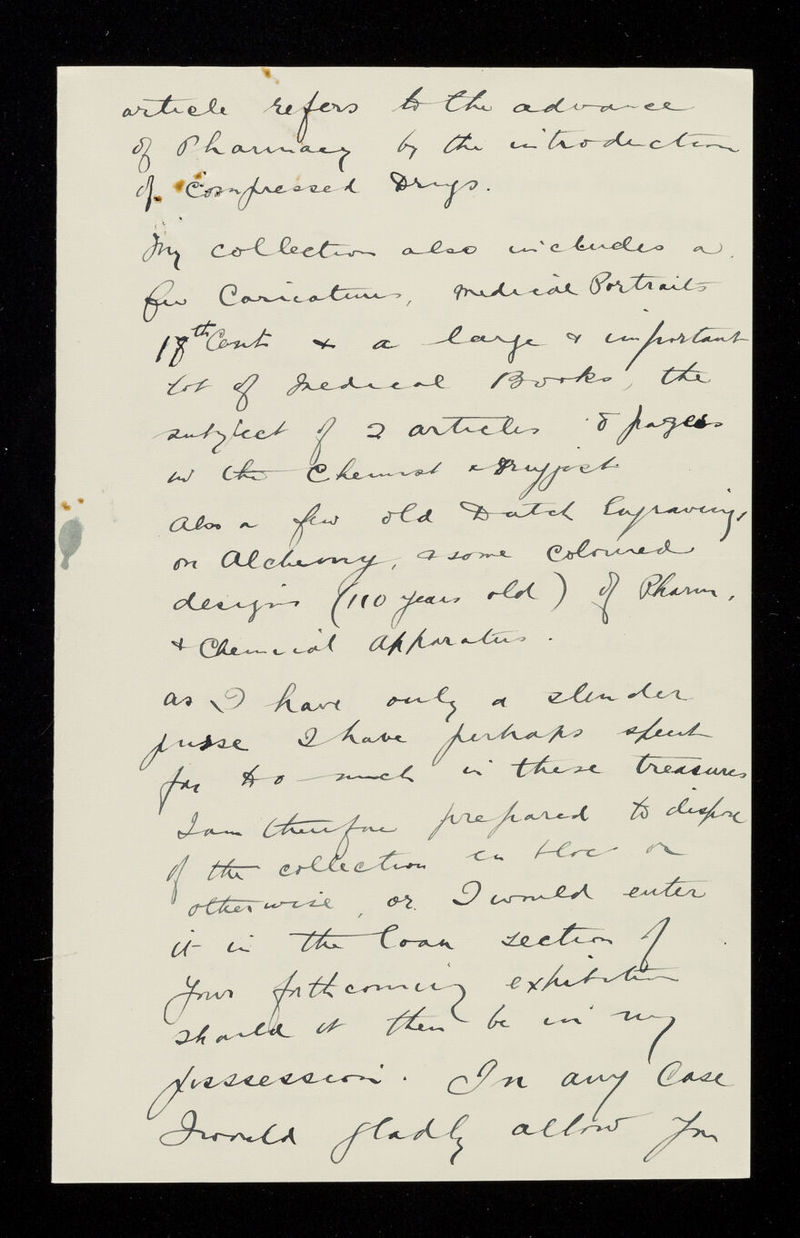 article refers to the advance
of Pharmacy by the introduction
of Compressed Drugs.
My collection also includes a
few Caricatures, Medical Portraits
18th Cent & a large & important
lot of Medical Books, the
subject of 2 articles 8 pages
in the Chemist & Druggist
Also a few old Dutch Engravings
on Alchemy, & some coloured
designs (110 years old) of Pharm.
& Chemical Apparatus.
As I have only a slender
purse I have perhaps spent
far to much in these treasures
I am therefore prepared to dispose
of the collection en bloc or
otherwise, or I would enter
it in the loan section of
your forthcoming exhibition
should it then be in my
possession. In any case
I would gladly allow you